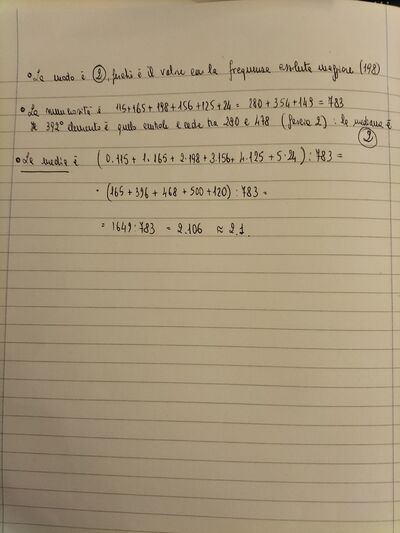 • La moda è 2, perché è il valore con la frequenza assoluta maggiore (198)
• La numerosità è 115+165+198+156+125+24 = 280 + 354 + 149 = 783
Il 392° elemento è quello centrale e cade tra 280 e 478 (fascia 2) : la mediana è
2
• La media è (0.115 + 1.165 + 2.198 + 3.156 + 4.125 + 5.24) : 783 =
= (165 + 396 + 468 + 500 + 120) : 783 =
= 1649 : 783 = 2.106 ≈ 2.1.